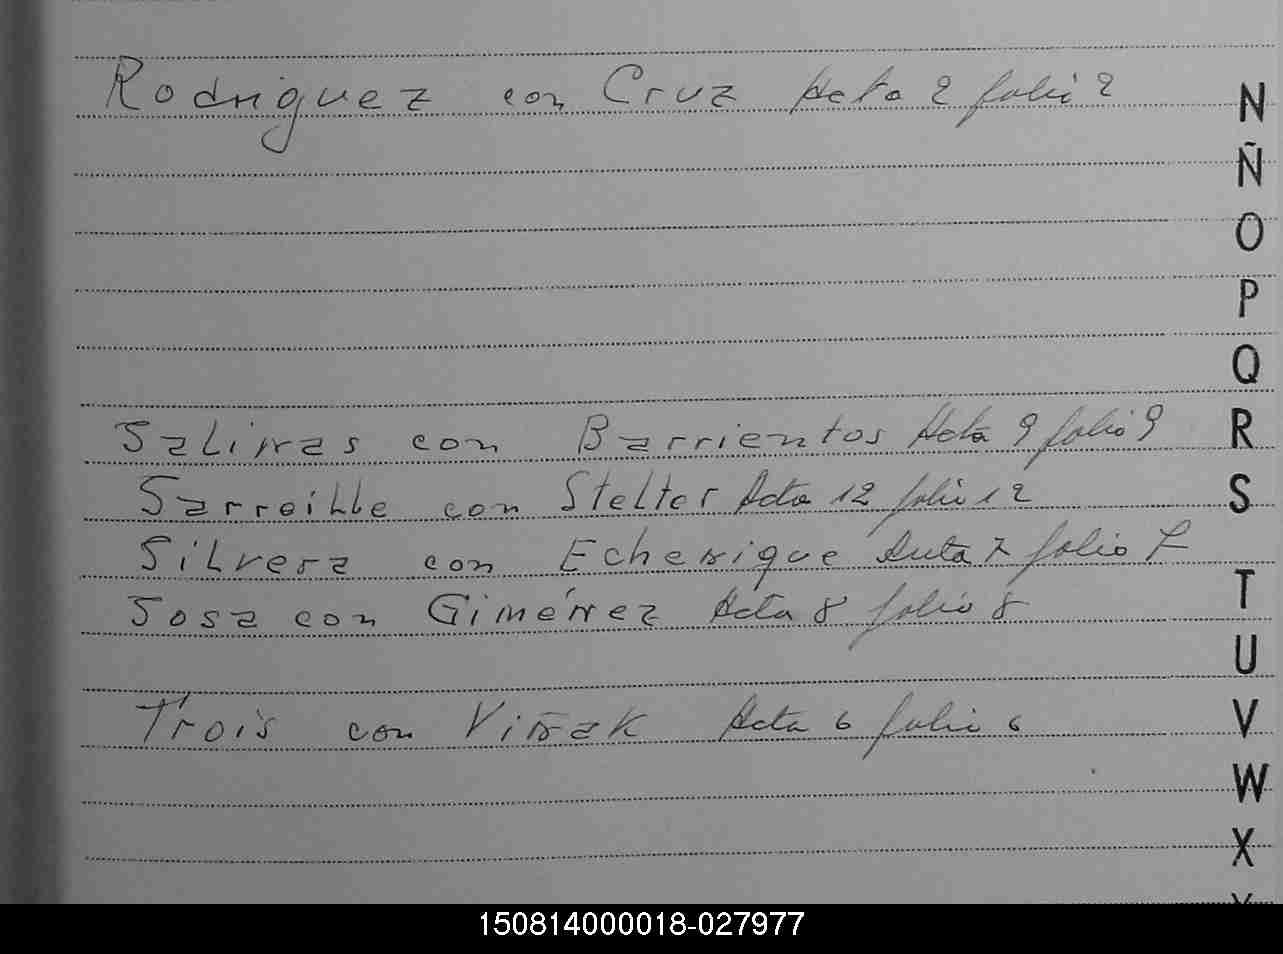 Rodriguez con Cruz Acta 2 folio 2
N
Ñ
O
P
Q
Salinas con Barrientos Acta 9 folio 9
R
Sarroille con Stelter Acta 12 folio 12
S
Silvera con Echenique Acta 7 folio 7
Sosa con Giménez Acta 8 folio 8
T
U
Trois con Viñak Acta 6 folio 6
V
W
X
150814000018-027977